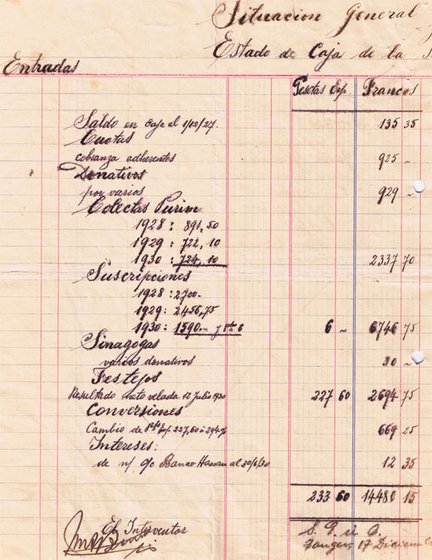 Situacion General
Estado de Caja de la
Entradas
Pesetas Esp. Francos
Saldo en caja al 1/12/27. 135 35
Cuotas
cobranza adherentes 925 -
Donativos
por varios 929 -
Colectas Purim
1928 : 891,50
1929 : 722,10
1930 : 724,10 2337 70
Suscripciones
1928 : 2700.-
1929 : 2456,75
1930 : 1590.- 6 - 6746 75
Sinagogas
varios donativos 30 -
Festejos
Resultado neto velada 12 Julio 1930 227 60 2694 75
Conversiones
Cambio de 669 25
Intereses:
de n/ c/c Banco Hassan al 30/6/30 12 35
233 60 14480 15
El Interventor
S. E. u O.
Tanger, 17 Diciem